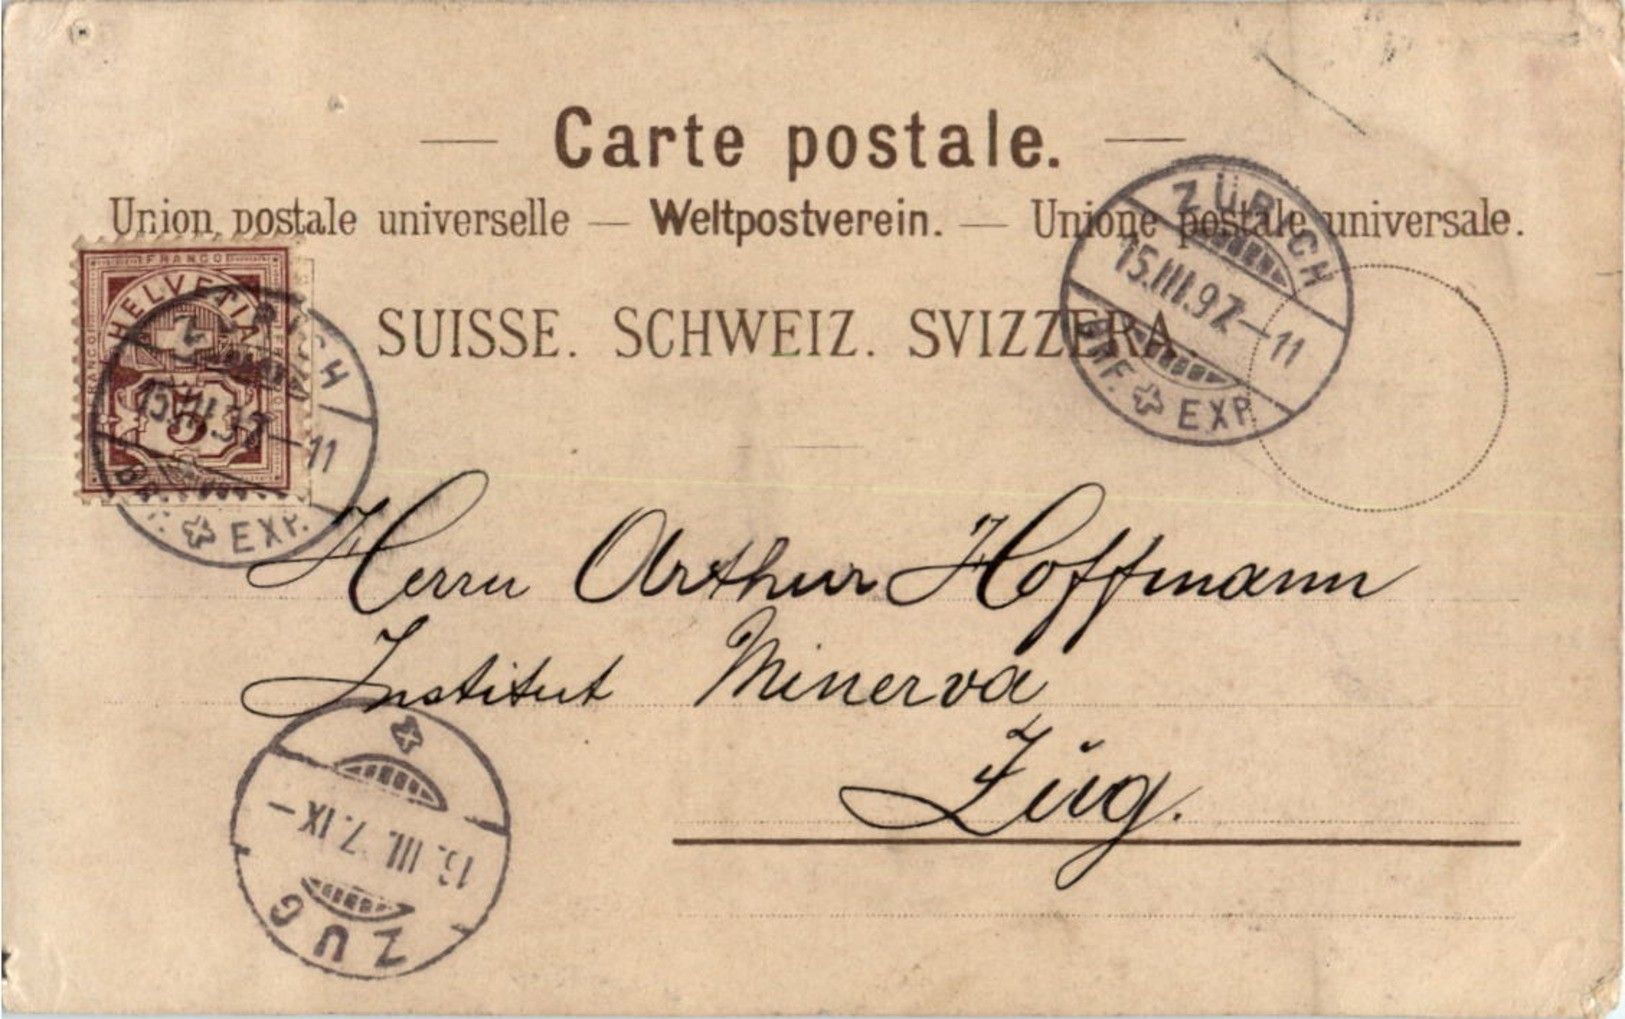 — Carte postale. —
Union postale universelle — Weltpostverein. — Unione postale universale.
SUISSE. SCHWEIZ. SVIZZERA.
FRANCO
HELVETIA
FRANCO
5
ZÜRICH
15.III.97–11
BRF. EXP.
ZÜRICH
15.III.97–11
BRF. EXP.
Herrn Arthur Hoffmann
Institut Minerva
Zug.
ZUG
16.III.97.IX–